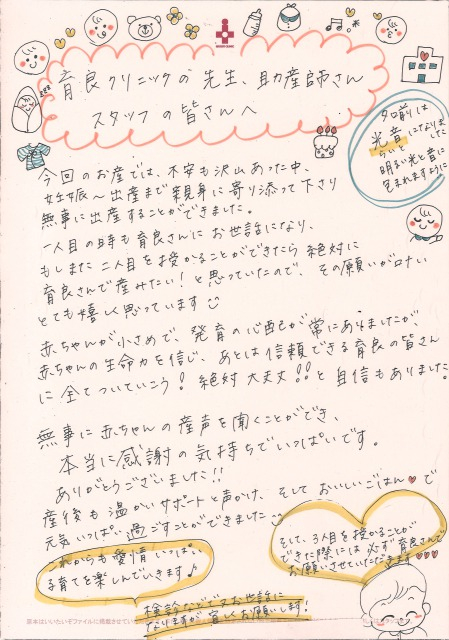 育良クリニックの先生、助産師さん
スタッフの皆さんへ
名前は
光音になりました
らいと
明るい光と音に
包まれますように
今回のお産では、不安も沢山あった中、
妊娠〜出産まで親身に寄り添って下さり
無事に出産することができました。
一人目の時も育良さんにお世話になり、
もしまた二人目を授かることができたら絶対に
育良さんで産みたい！と思っていたので、その願いが叶い
とても嬉しく思っています
赤ちゃんが小さめで、発育の心配が常にありましたが、
赤ちゃんの生命力を信じ、あとは信頼できる育良の皆さん
に全てついていこう！絶対大丈夫!!と自信もありました。
無事に赤ちゃんの産声を聞くことができ、
本当に感謝の気持ちでいっぱいです。
ありがとうございました!!
産後も温かいサポートと声かけ、そしておいしいごはん♥で
元気いっぱい過ごすことができました
これからも愛情いっぱい
子育てを楽しんでいきます♪
そして、3人目を授かることが
できた際には必ず育良さんで
お願いさせていただきます♥♥♥
検診などでまたお世話に
なりますが宜しくお願いします！
原本はいいたいそファイルに掲載させてい